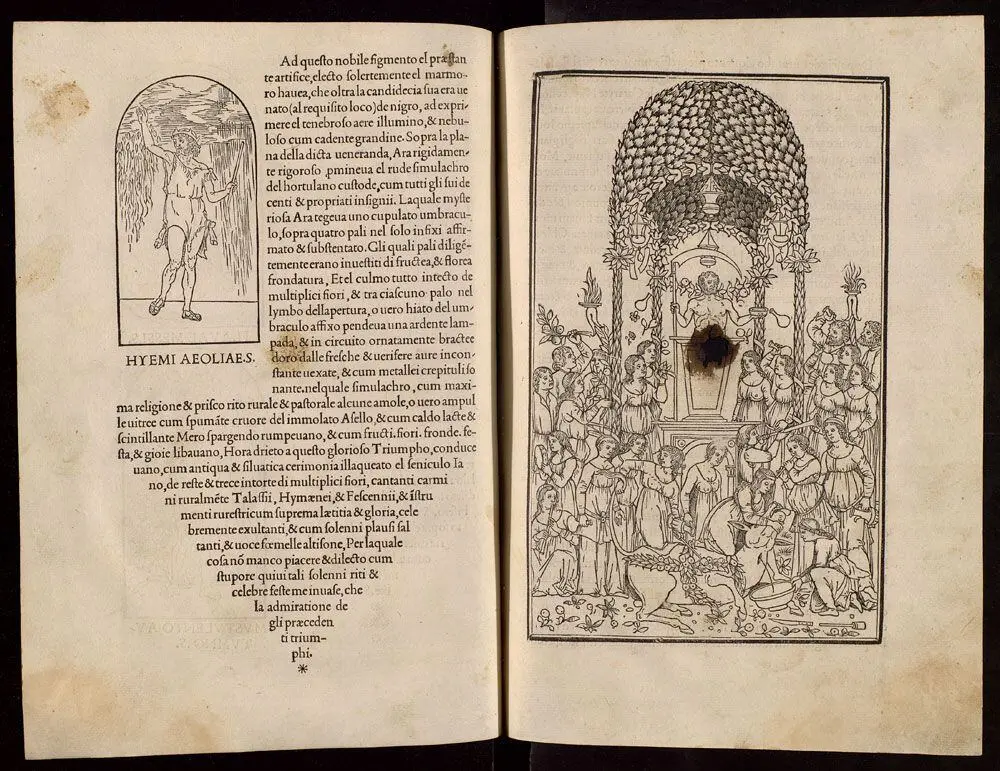 Ad questo nobile figmento el præstan
te artifice, electo solertemente el marmo-
ro hauea, che oltra la candidecia sua era ue
nato (al requisito loco) de nigro, ad expri-
mere el tenebroso aere illumino, & nebu-
loso cum cadente grandine. Sopra la pla-
na della dicta ueneranda, Ara rigidamen-
te rigoroso ,pmineua el rude simulachro
del hortulano custode, cum tutti gli sui de
centi & propriati insignii. Laquale myste
riosa Ara tegeua uno cupulato umbracu-
lo, sopra quatro pali nel solo infixi affir-
mato & substentato. Gli quali pali diligē-
temente erano inuestiti di fructea, & florea
frondatura, Et el culmo tutto intecto de
multiplici fiori, & tra ciascuno palo nel
lymbo dellapertura, o uero hiato del um-
braculo affixo pendeua una ardente lam-
pada, & in circuito ornatamente bractee
doro dalle fresche & uerifere aure incon-
stante uexate, & cum metallei crepituli so
nante. nelquale simulachro, cum maxi-
HYEMI AEOLIAE.S.
ma religione & prisco rito rurale & pastorale alcune amole, o uero ampul
le uitree cum spumāte cruore del immolato Asello, & cum caldo lacte &
scintillante Mero spargendo rumpeuano, & cum fructi. fiori. fronde. fe-
sta, & gioie libauano, Hora drieto a questo glorioso Triumpho, conduce
uano, cum antiqua & siluatica cerimonia illaqueato el seniculo Ia
no, de reste & trece intorte di multiplici fiori, cantanti carmi
ni ruralmēte Talassii, Hymænei, & Fescennii, & istru
menti rurestricum suprema lætitia & gloria, cele
bremente exultanti, & cum solenni plausi sal
tanti, & uoce fœmelle altisone, Per laquale
cosa nō manco piacere & dilecto cum
stupore quiui tali solenni riti &
celebre feste me inuase, che
la admiratione de
gli præceden
ti trium-
phi.
*